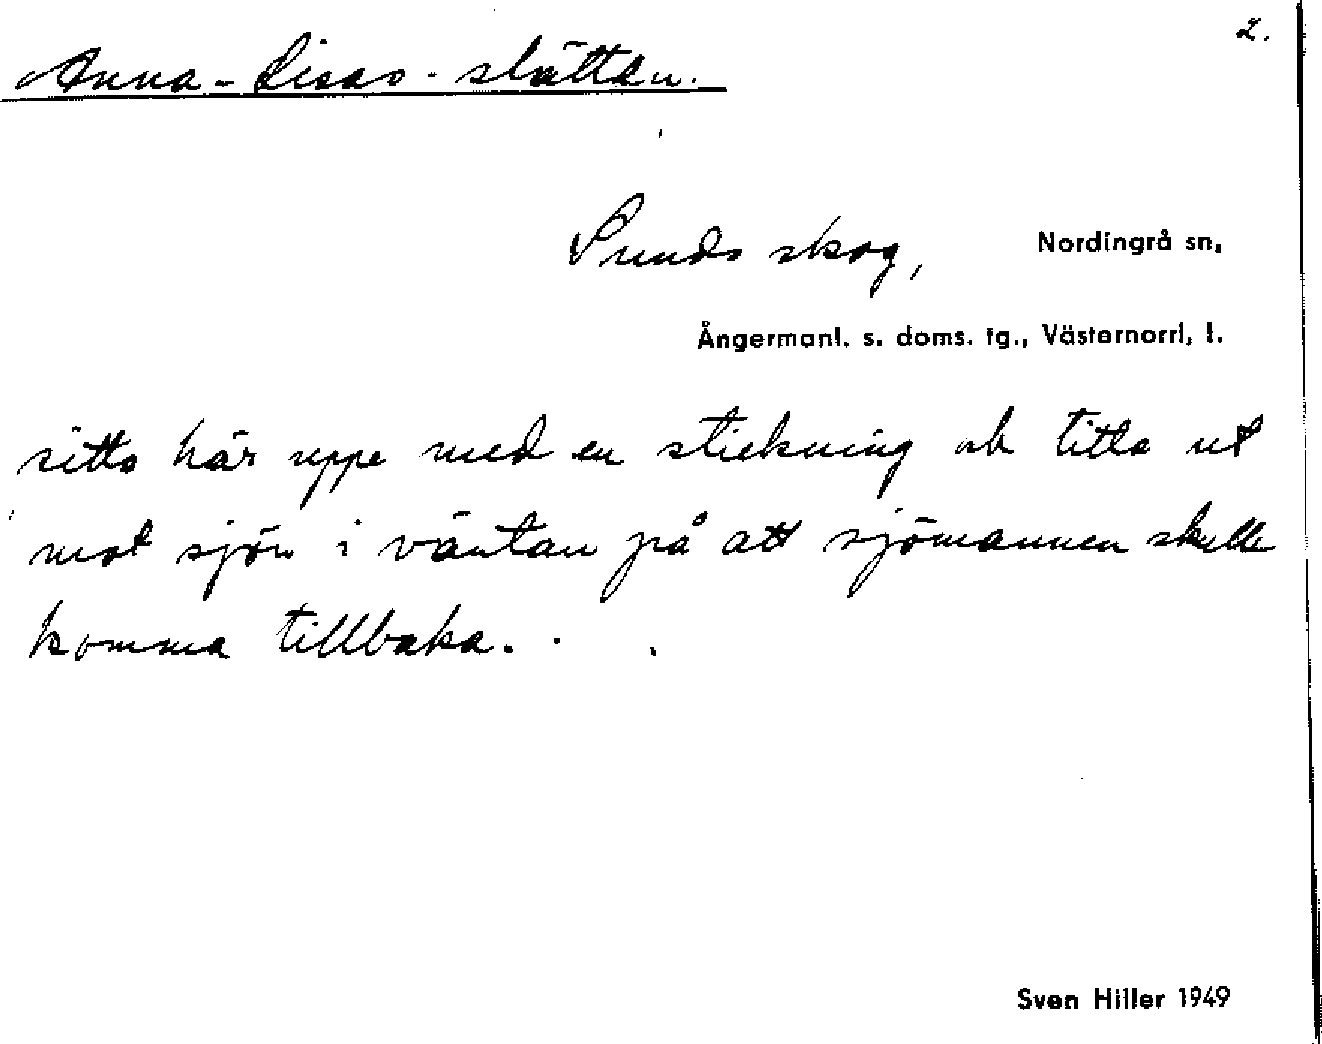 2.
Anna-Lisas-slätten.
Sunds skog, Nordingrå sn,
Ångermanl. s. doms. tg., Västernorrl, l.
sitta här uppe med en stickning och titta ut
mot sjön i väntan på att sjömannen skulle
komma tillbaka.
Sven Hiller 1949